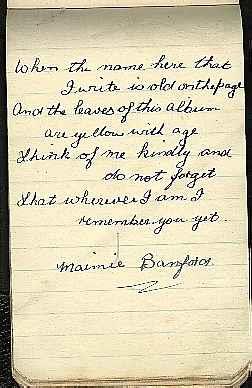 When the name here that
I write is old on the page
And the leaves of this Album
are yellow with age
Think of me kindly and
do not forget
That wherever I am I
remember you yet.
Maimie Bamford.